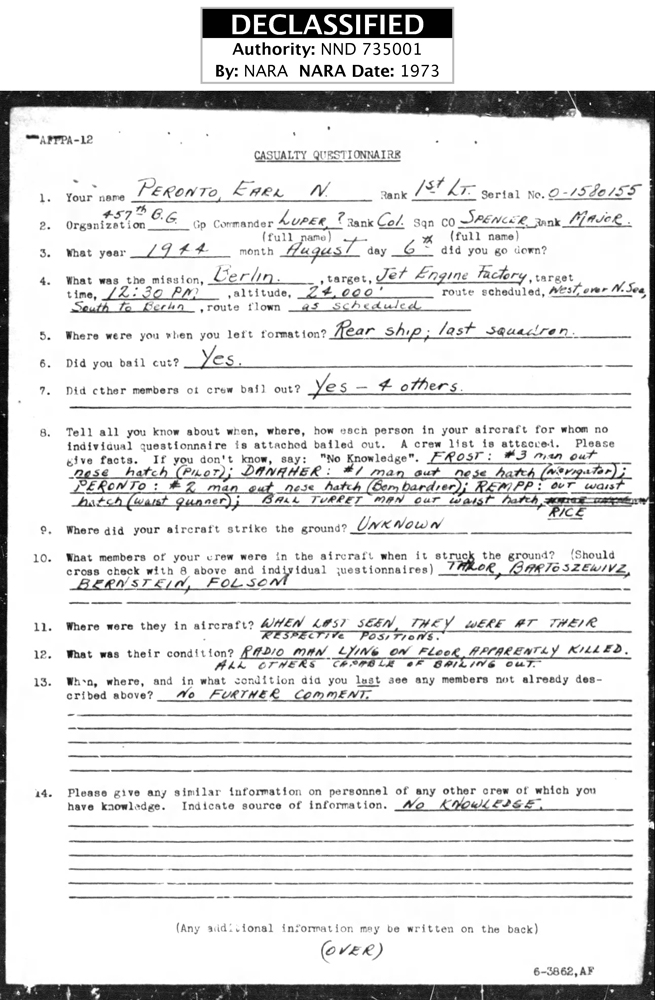 DECLASSIFIED
Authority: NND 735001
By: NARA NARA Date: 1973
AFPPA-12
CASUALTY QUESTIONNAIRE
1. Your name PERONTO, EARL N. Rank 1st LT. Serial No. O-1580155
2. Organization 457th B.G. Gp Commander LUPER, ? Rank Col. Sqn CO SPENCER Rank MAJOR.
(full name) (full name)
3. What year 1944 month August day 6th did you go down?
4. What was the mission, Berlin. , target, Jet Engine Factory, target
time, 12:30 PM , altitude, 24,000' route scheduled, West, over N. Sea,
South to Berlin , route flown as scheduled
5. Where were you when you left formation? Rear ship; last squadron.
6. Did you bail out? Yes.
7. Did other members of crew bail out? Yes – 4 others.
8. Tell all you know about when, where, how each person in your aircraft for whom no
individual questionnaire is attached bailed out. A crew list is attached. Please
give facts. If you don't know, say: "No Knowledge". FROST: #3 man out
nose hatch (PILOT); DANAHER: #1 man out nose hatch (Navigator);
PERONTO: #2 man out nose hatch (Bombardier); REMPP: OUT WAIST
hatch (waist gunner); BALL TURRET MAN OUT WAIST hatch,
RICE
9. Where did your aircraft strike the ground? UNKNOWN
10. What members of your crew were in the aircraft when it struck the ground? (Should
cross check with 8 above and individual questionnaires) TAYLOR, BARTOSZEWIVZ,
BERNSTEIN, FOLSOM
11. Where were they in aircraft? WHEN LAST SEEN, THEY WERE AT THEIR
RESPECTIVE POSITIONS.
12. What was their condition? RADIO MAN LYING ON FLOOR, APPARENTLY KILLED.
ALL OTHERS CAPABLE OF BAILING OUT.
13. When, where, and in what condition did you last see any members not already des-
cribed above? NO FURTHER COMMENT.
14. Please give any similar information on personnel of any other crew of which you
have knowledge. Indicate source of information. NO KNOWLEDGE.
(Any additional information may be written on the back)
(OVER)
6-3862,AF